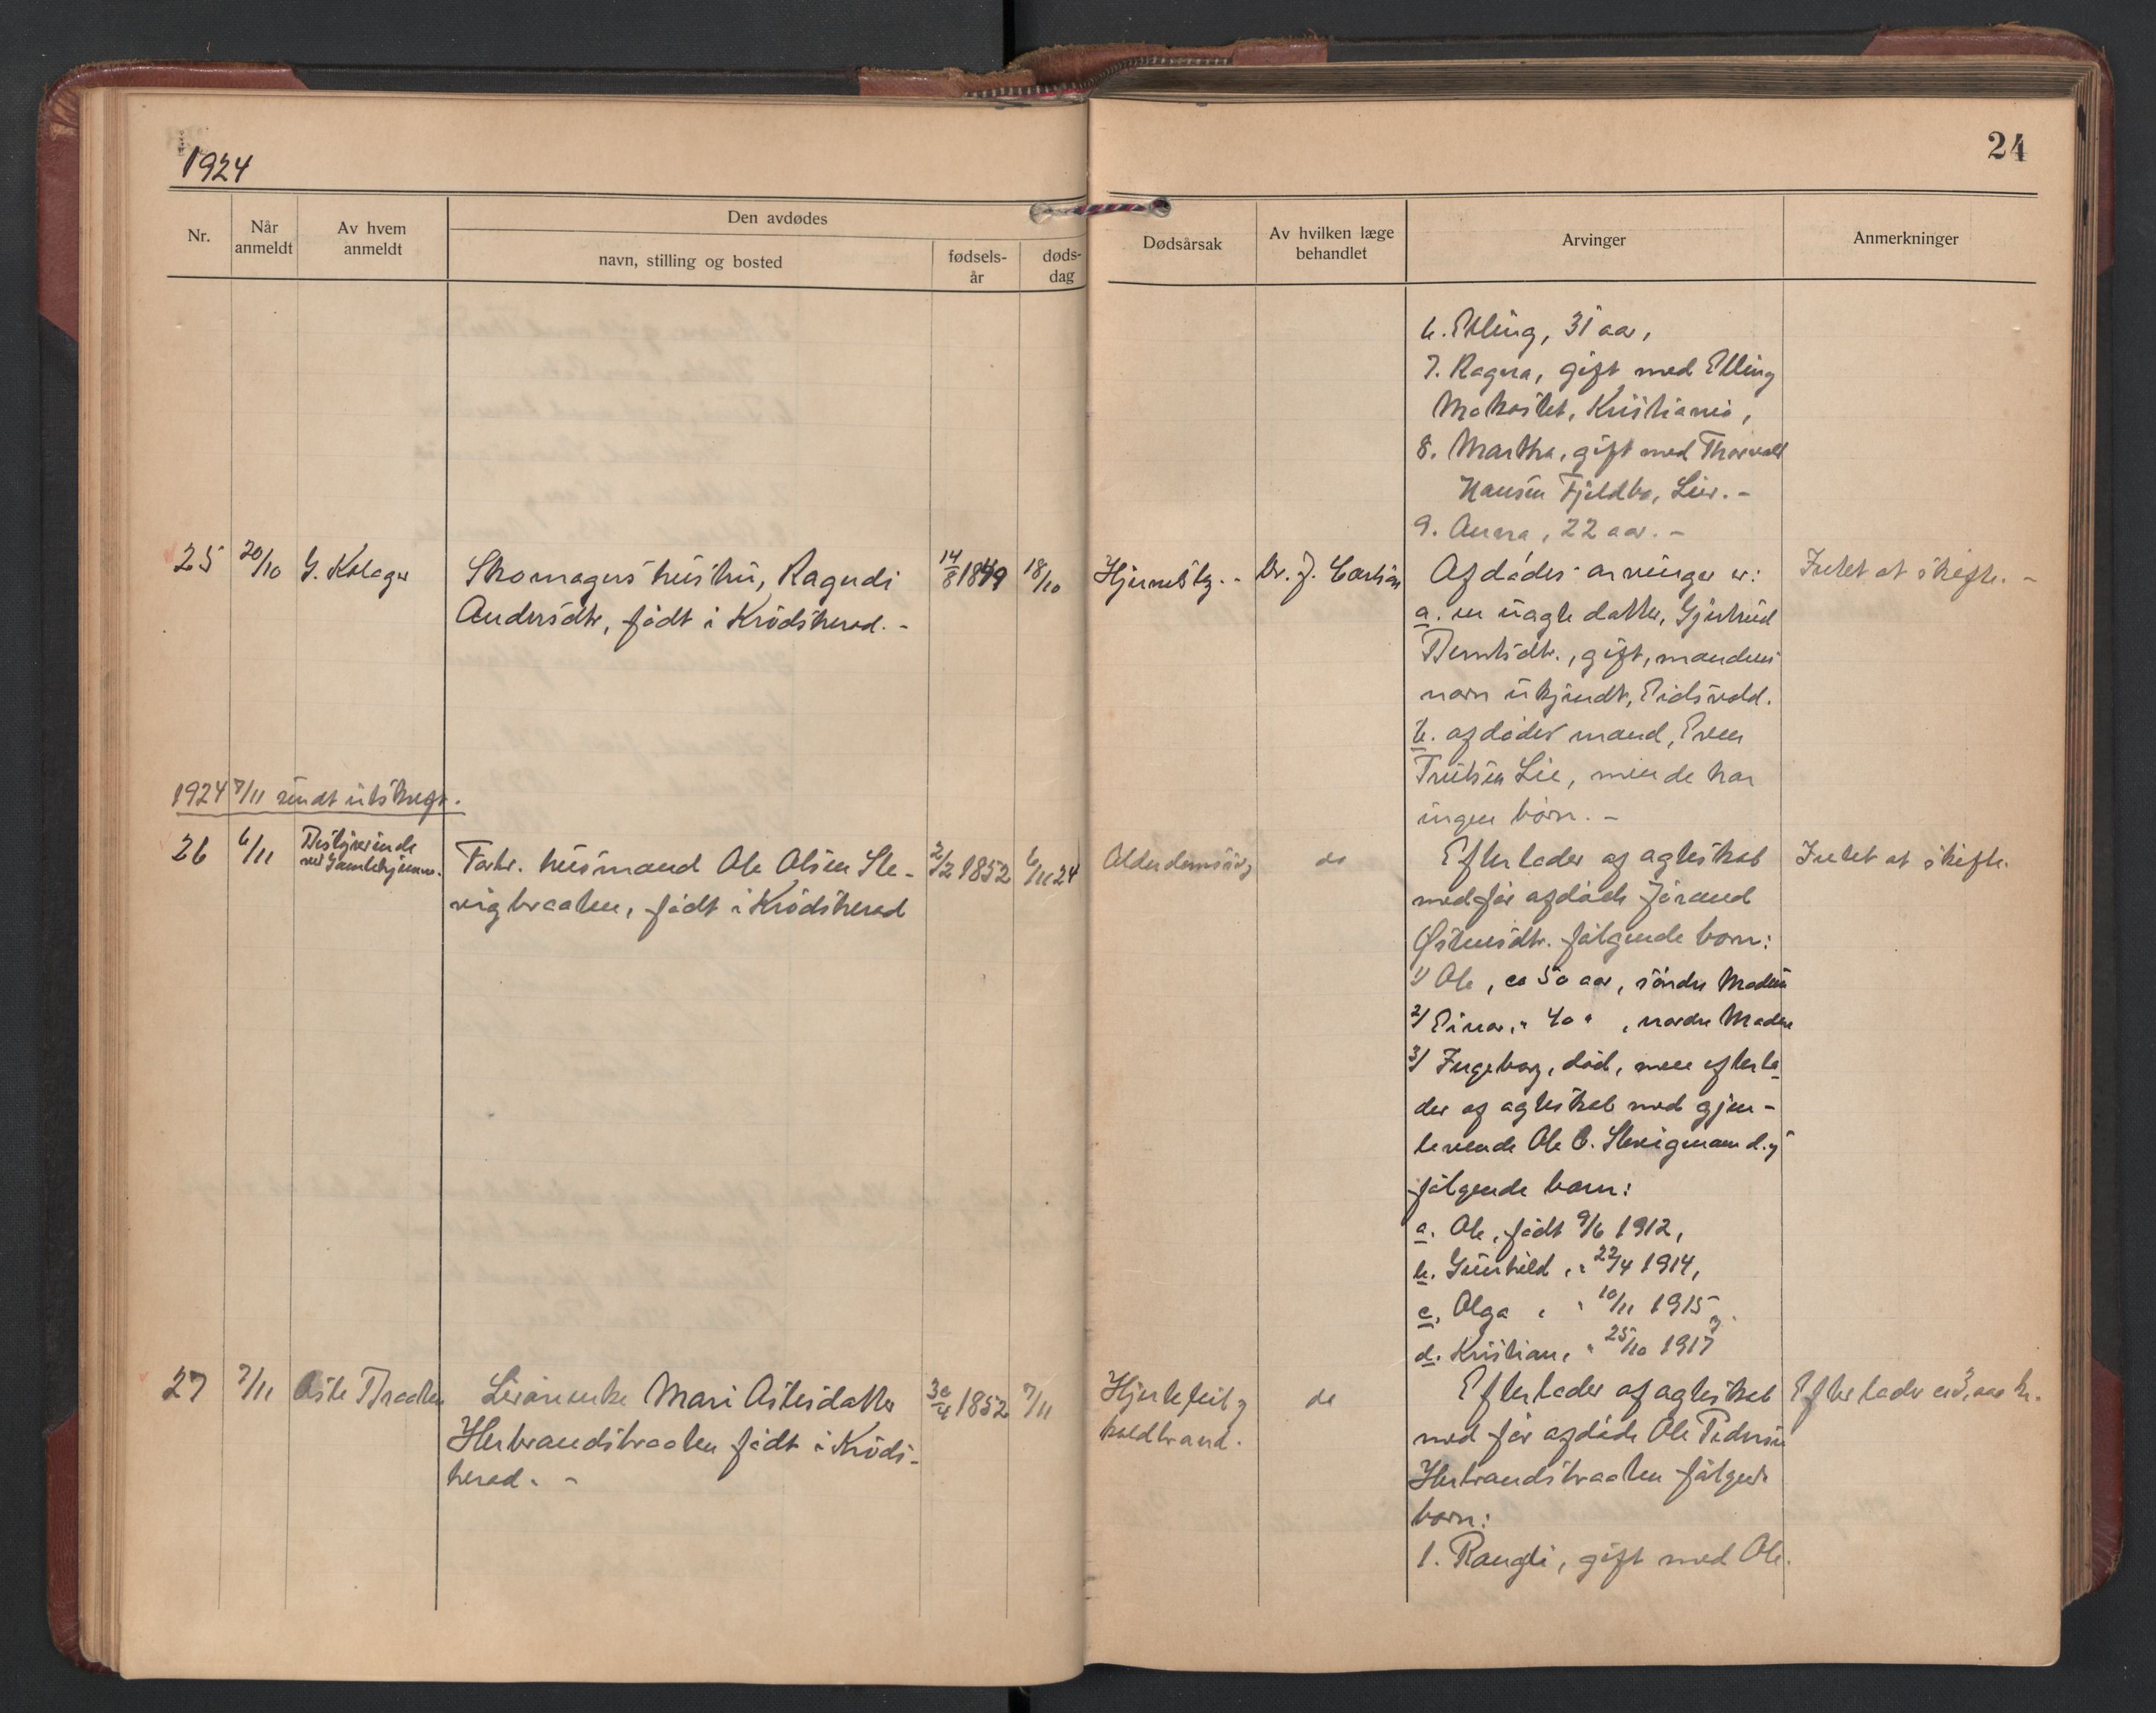 1924
24
Nr.
Når anmeldt
Av hvem anmeldt
Den avdødes
navn, stilling og bosted
fødsels-år
døds-dag
Dødsårsak
Av hvilken læge behandlet
Arvinger
Anmerkninger
6. Elling, 31 aar,
7. Ragna, gift med Elling
Kristiania,
8. Martha, gift med Thorvald
Hansen Fjeldbo, Lier. -
9. Anna, 22 aar. -
25 20/10 G. Kolager Skomagers hustru, Ragndi 14/8 1849 18/10 Hjerneslg. - Dr. J. Afdødes arvinger er: Intet at skifte. -
Andersdtr, født i Krødsherad. -
a. en uægte datter, Gjertrud
Berntsdtr., gift, mandens
navn ukjendt, Eidsvold.
b. afdødes mand, Even
Lie, men de har
ingen børn. -
1924 7/11 sendt utskrift.
26 6/11 Bestyrerinde
ved Gamlehjemmet.
Forhv. husmand Ole Olsen Sle-
vigbraaten, født i Krødsherad
2/2 1852 6/11 24 Alderdomssvag do Efterlader af ægteskab Intet at skifte.
med før afdøde Jørand
Østensdtr. følgende børn:
1/ Ole, ca 50 aar, søndre Modum
2/ Einar, " 40 " , nordre Modum
3/ Ingeborg, død, men efterla-
der af ægteskab med gjen-
levende Ole O. Slevigmoen d.y.
følgende børn:
a. Ole, født 9/6 1912,
b. Gunhild, " 22/4 1914,
c. Olga , " 10/11 1915,
d. Kristian, " 25/10 1917
27 7/11 Asle Braaten Mari Aslesdatter 30/4 1852 7/11 Hjertefeil og do Efterlader af ægteskab Efterlader ca 3,000 kr.
Herbrandsbraaten født i Krøds-
herad. -
koldbrand.
med før afdøde Ole Pedersen
Herbrandsbraaten følgende
børn:
1. Rangdi, gift med Ole